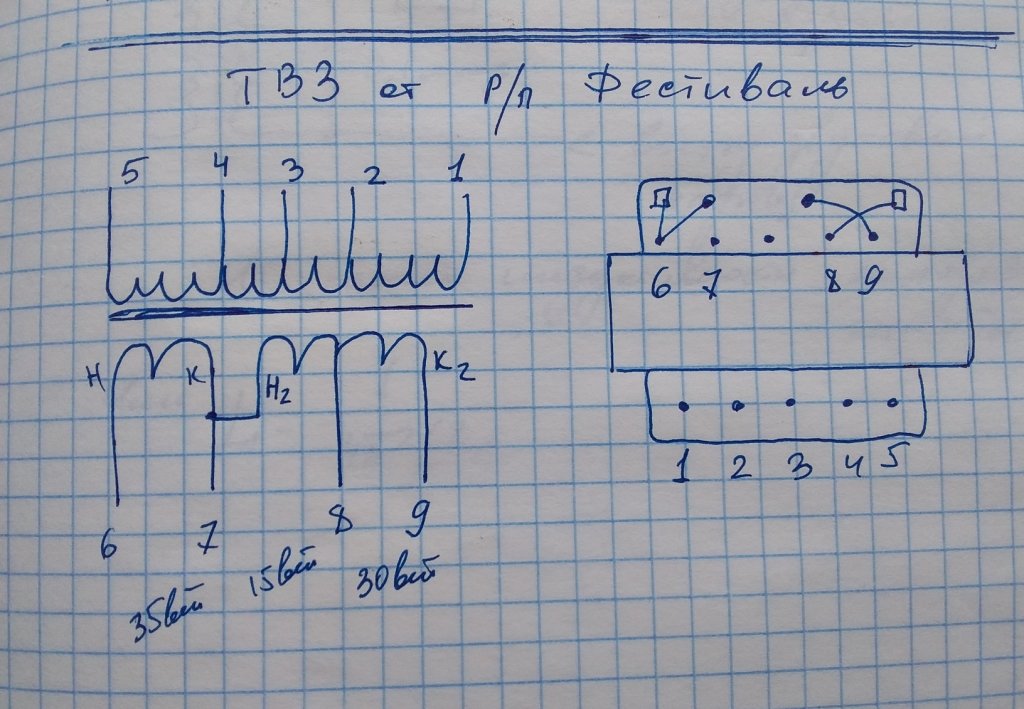 ТВЗ от Р/п Фестиваль
5 4 3 2 1
Н К Н2 К2
6 7 8 9
35вит 15вит 30вит
6 7 8 9
1 2 3 4 5